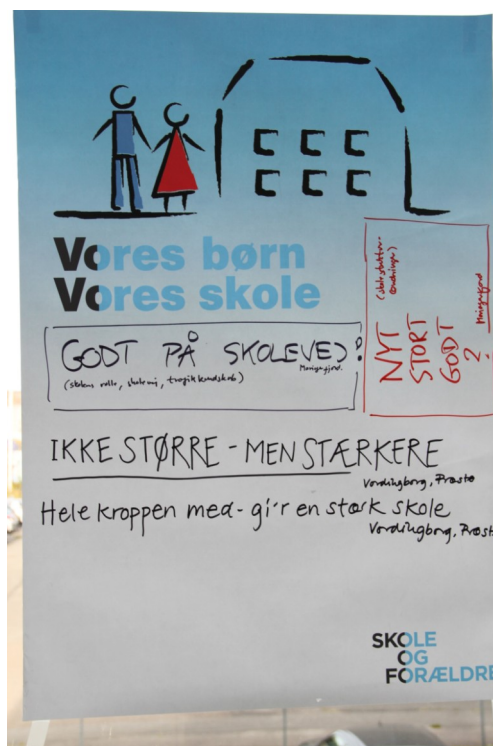 Vores børn
Vores skole
GODT PÅ SKOLEVEJ!
(skolens rolle, skolevej, trafikkendskab)
NYT
STORT
GODT
?
IKKE STØRRE - MEN STÆRKERE
Vordingborg, Præstø
Hele kroppen med - gi'r en stærk skole
Vordingborg, Præst
SKOLE
OG
FORÆLDRE